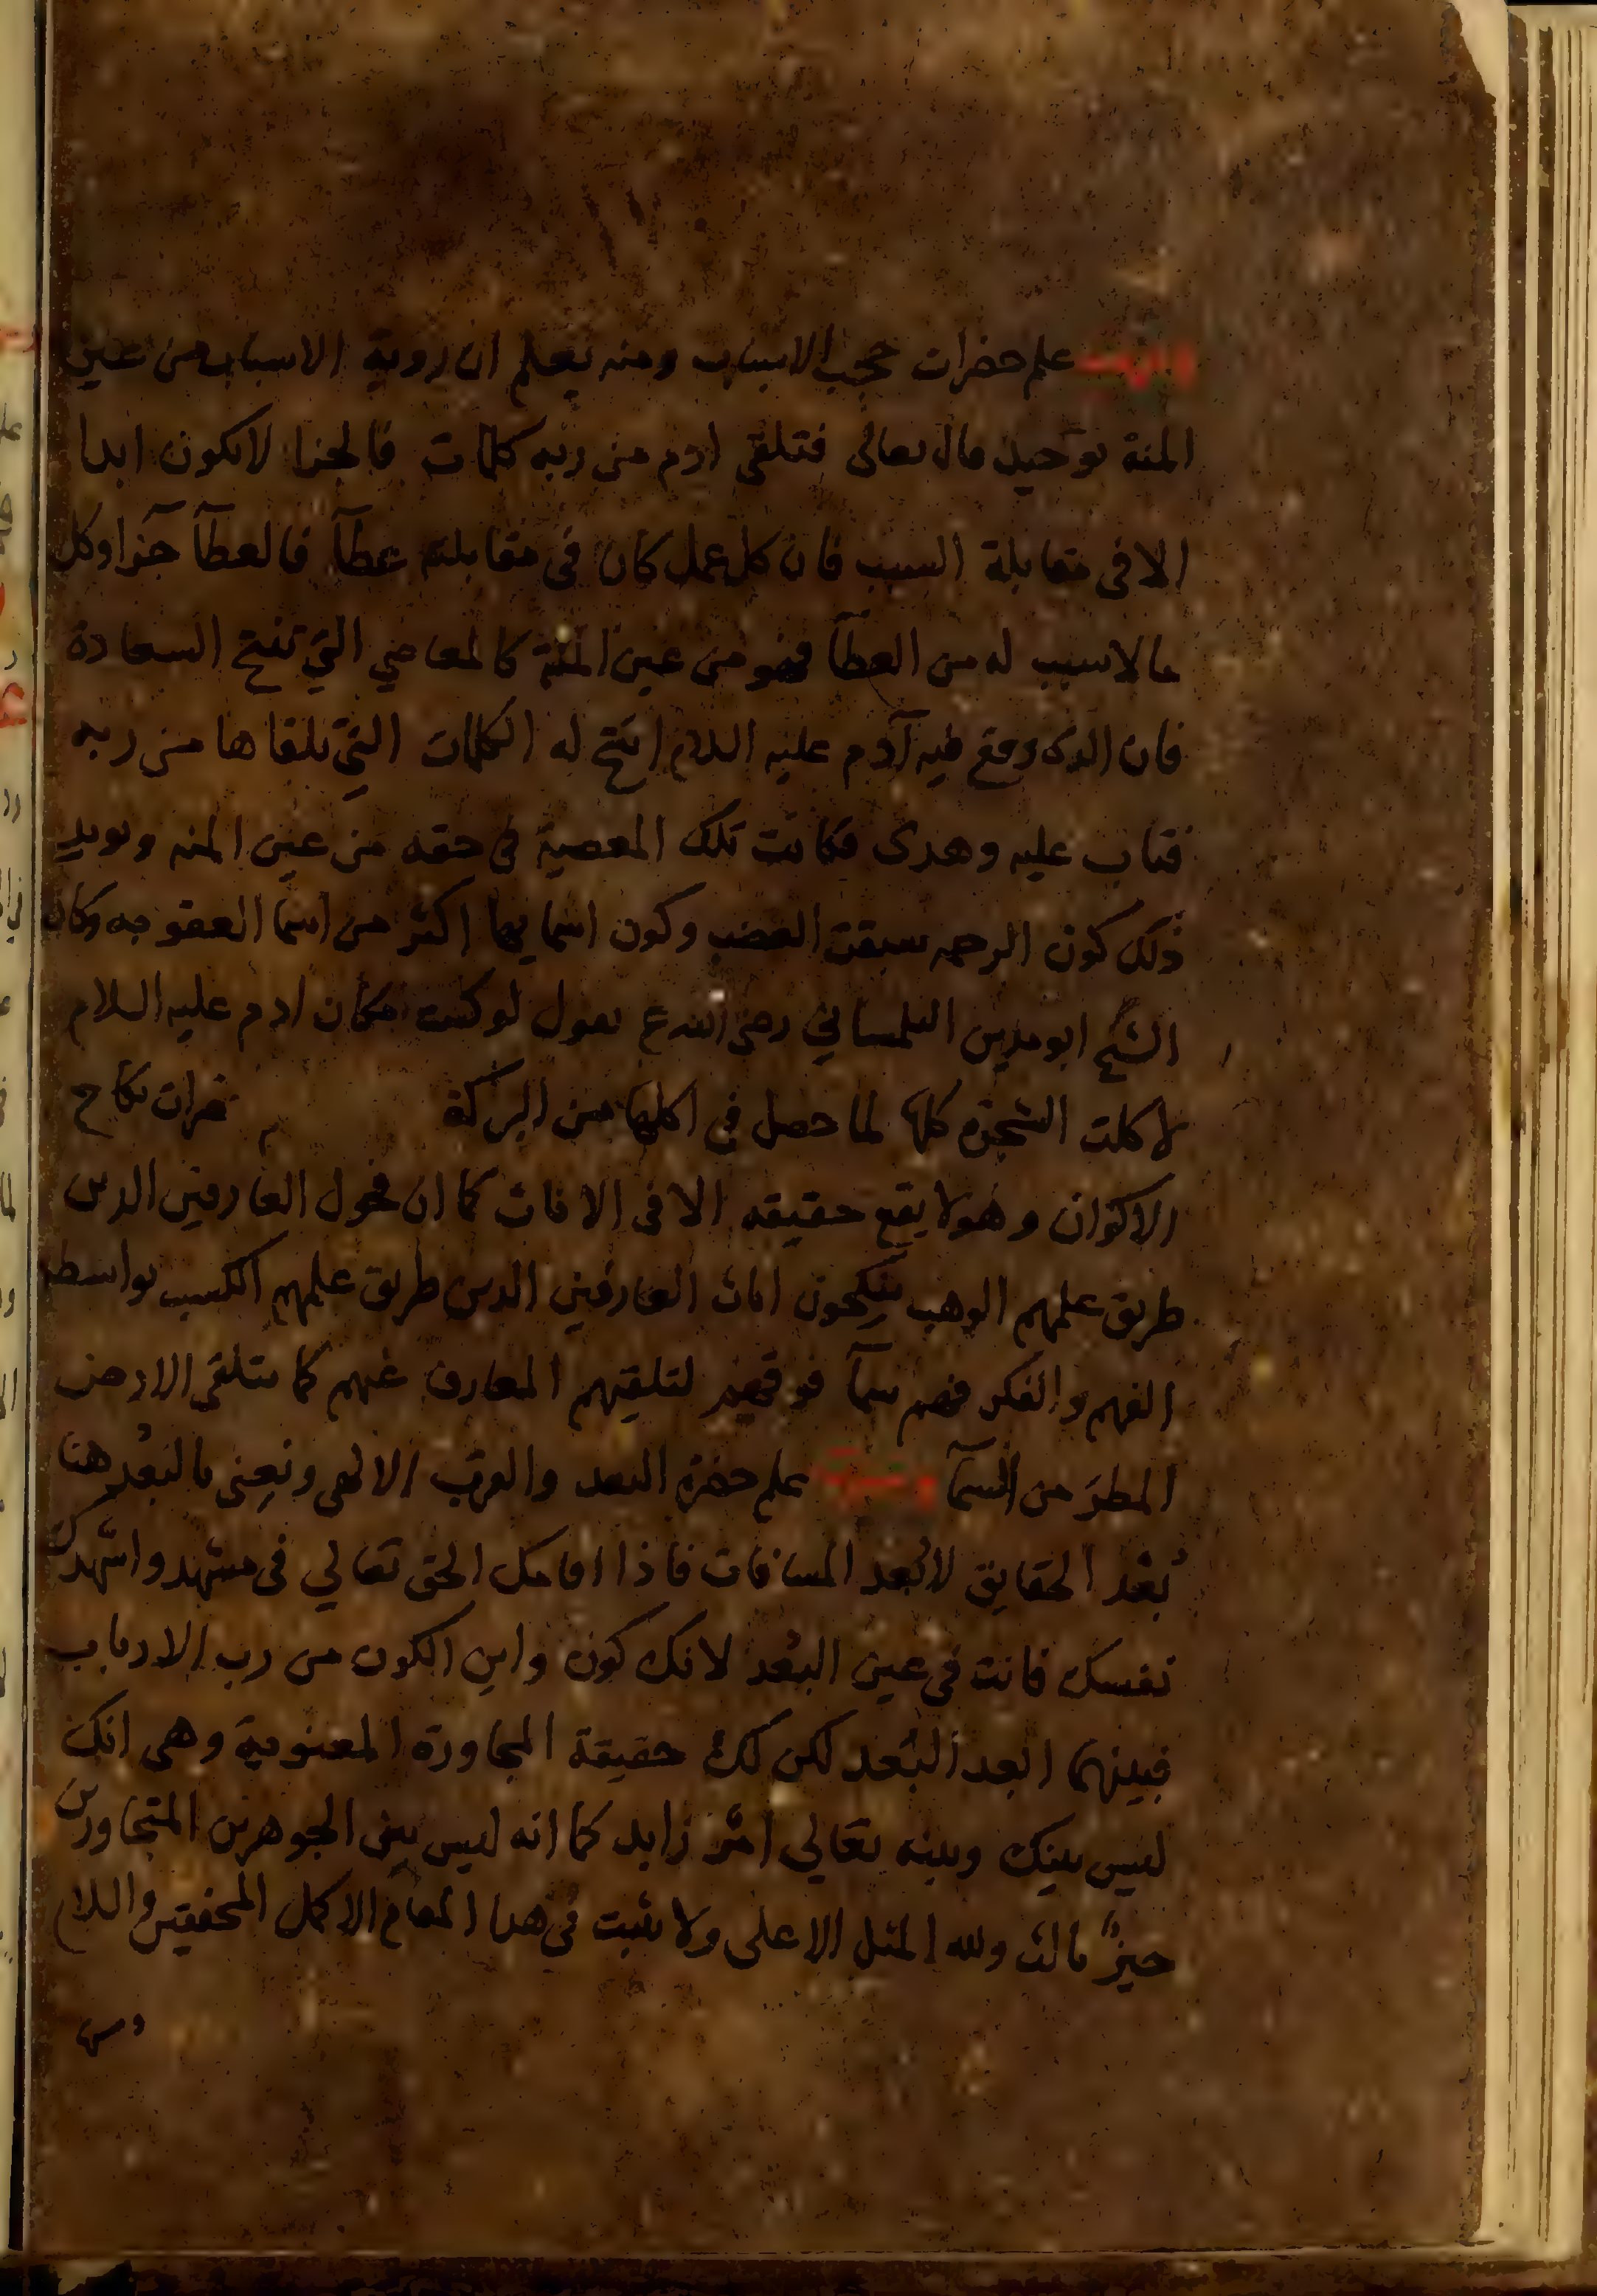 علم حضرات حجب الاسباب ومنه يعلم ان روية الاسباب من عين
المنة توحيد قال تعالى فتلقى ادم من ربه كلمات فالجزا لا يكون ابدا
الا فى مقابلة السبب فان كل عمل كان فى مقابلته عطآ فالعطآ جزآ وكل
مالا سبب له من العطآ فهو من عين المنة كالمعاصي التي تنتج السعادة
فان الذى وقع فيه آدم عليه السلام انتج له الكلمات التي تلقاها من ربه
فتاب عليه وهدى فكانت تلك المعصية فى حقه من عين المنه ويويد
ذلك كون الرحمه سبقت الغضب وكون اسمايها اكثر من اسما العقوبه وكان
الشيخ ابو مدين التلمساني رضى الله ع يقول لو كنت مكان ادم عليه السلام
لاكلت الشجرة كلها لما حصل في اكلها من البركة نكاح
الاكوان وهو لا يقع حقيقه الا فى الافات كما ان فحول العارفين الذين
طريق علمهم الوهب ينكحون اناث العارفين الذين طريق علمهم الكسب بواسطه
الفهم والفكر فهم سمآ فوقهم لتلقيهم المعارف عنهم كما يتلقى الارض
المطر من السمآ علم حضرة البعد والقرب الالهى ونعنى بالبعد هنا
بُعْد الحقايق لا بُعد المسافات فاذا اقامك الحق تعالي فى مشهد واشهدك
نفسك فانت فى عين البُعد لانك كون واين الكون من رب الارباب
فبينهما ابعد البُعد لكن لك حقيقة المجاورة المعنوية وهى انك
ليس بينك وبينه تعالي امر زايد كما انه ليس بين الجوهرين المتجاورين
حيز ثالث ولله المثل الاعلى ولا يثبت فى هذا المقام الا كمل المحققين والسلام